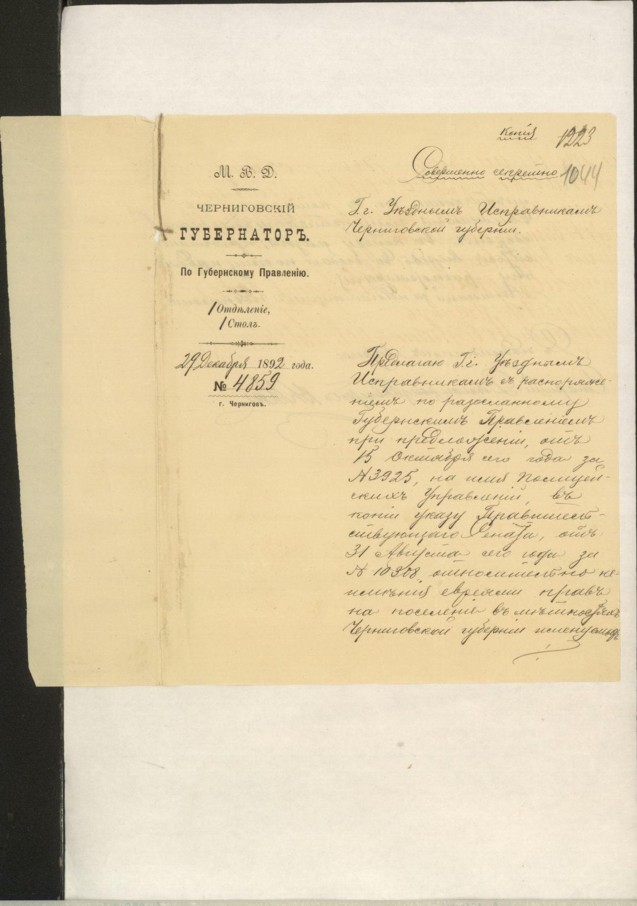 Копія
1223
Совершенно секретно
1044
М. В. Д.
ЧЕРНИГОВСКІЙ
ГУБЕРНАТОРЪ.
По Губернскому Правленію.
1 Отдѣленіе,
1 Столъ.
29 Декабря 1892 года.
№ 4859
г. Черниговъ.
Гг. Уѣзднымъ Исправникамъ
Черниговской губерніи.
Предлагаю Гг. Уѣзднымъ
Исправникамъ съ распоряже-
ніемъ по разосланному
Губернскимъ Правленіемъ
при предложеніи, отъ
15 Октября сего года за
№ 3925, на имя Полицей-
скихъ Управленій, въ
копіи указу Правитель-
ствующаго Сената, отъ
31 Августа сего года за
№ 10858, относительно не-
имѣнія евреями правъ
на поселеніе въ мѣстностяхъ
Черниговской губерніи